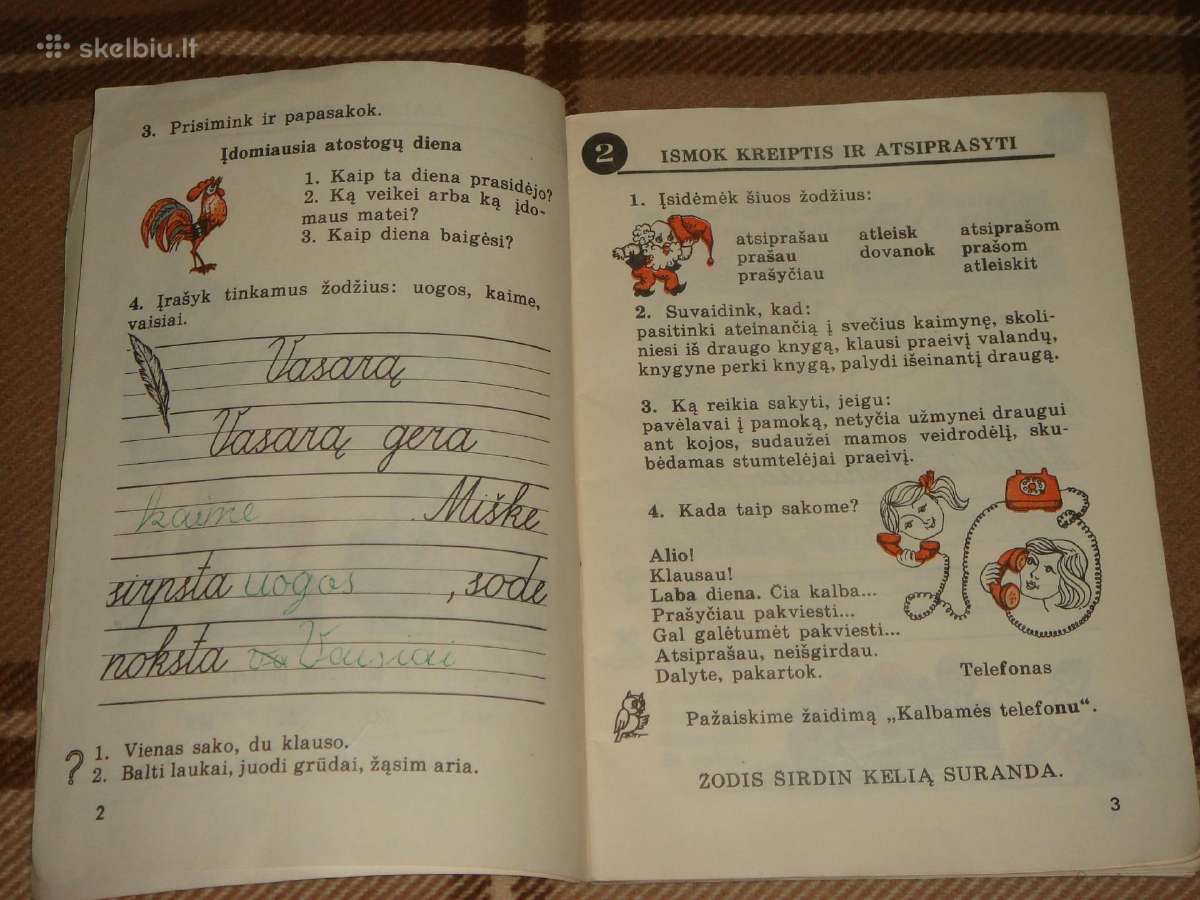 skelbiu.lt
3. Prisimink ir papasakok.
Įdomiausia atostogų diena
1. Kaip ta diena prasidėjo?
2. Ką veikei arba ką įdo-
maus matei?
3. Kaip diena baigėsi?
4. Įrašyk tinkamus žodžius: uogos, kaime,
vaisiai.
Vasarą
Vasarą gera
kaime . Miške
sirpsta uogos , sode
noksta va Vaisiai
? 1. Vienas sako, du klauso.
2. Balti laukai, juodi grūdai, žąsim aria.
2
2 IŠMOK KREIPTIS IR ATSIPRAŠYTI
1. Įsidėmėk šiuos žodžius:
atsiprašau atleisk atsiprašom
prašau dovanok prašom
prašyčiau atleiskit
2. Suvaidink, kad:
pasitinki ateinančią į svečius kaimynę, skoli-
niesi iš draugo knygą, klausi praeivį valandų,
knygyne perki knygą, palydi išeinantį draugą.
3. Ką reikia sakyti, jeigu:
pavėlavai į pamoką, netyčia užmynei draugui
ant kojos, sudaužei mamos veidrodėlį, sku-
bėdamas stumtelėjai praeivį.
4. Kada taip sakome?
Alio!
Klausau!
Laba diena. Čia kalba...
Prašyčiau pakviesti...
Gal galėtumėt pakviesti...
Atsiprašau, neišgirdau.
Dalyte, pakartok. Telefonas
Pažaiskime žaidimą „Kalbamės telefonu“.
ŽODIS ŠIRDIN KELIĄ SURANDA.
3